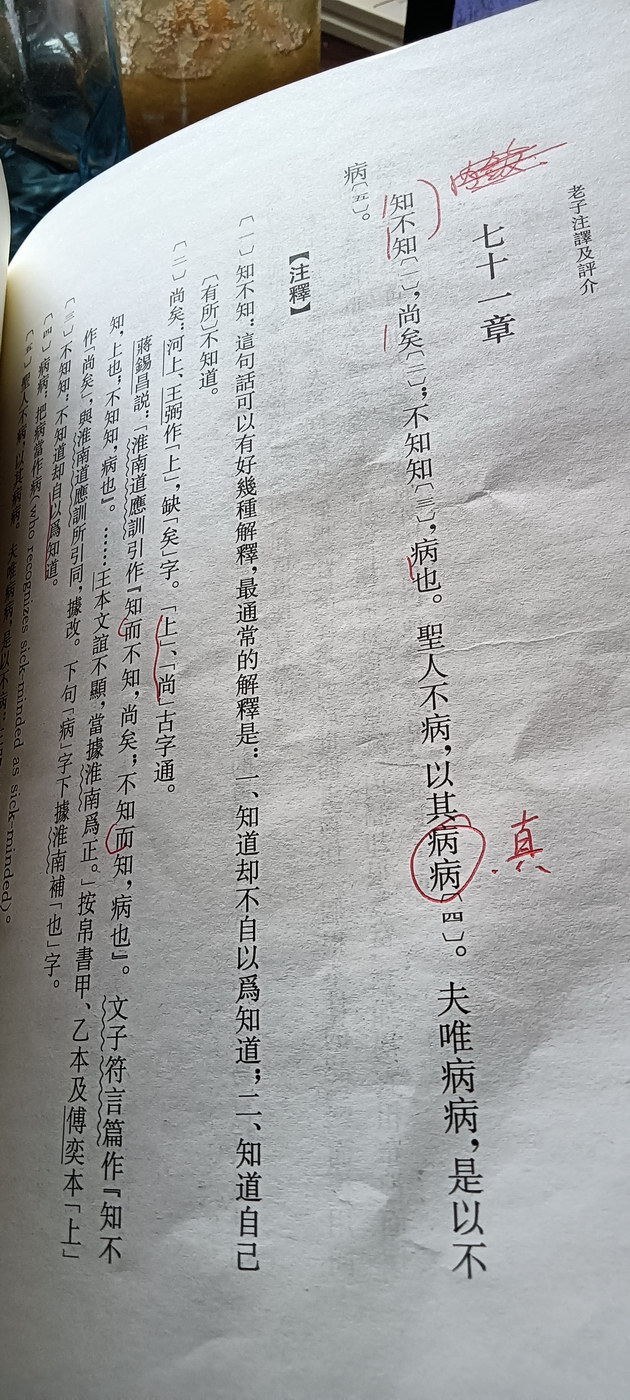 老子注譯及評介
七十一章
知不知〔一〕，尚矣〔二〕；不知知〔三〕，病也。聖人不病，以其病病〔四〕。夫唯病病，是以不
真
病〔五〕。
【注釋】
〔一〕知不知：這句話可以有好幾種解釋，最通常的解釋是：一、知道却不自以爲知道；二、知道自己
〔有所〕不知道。
〔二〕尚矣：河上、王弼作「上」，缺「矣」字。「上」、「尚」古字通。
蔣錫昌説：「淮南道應訓引作『知而不知，尚矣；不知而知，病也』。文子符言篇作『知不
知，上也；不知知，病也』。……王本文誼不顯，當據淮南爲正。」按帛書甲、乙本及傅奕本「上」
作「尚矣」，與淮南道應訓所引同，據改。下句「病」字下據淮南補「也」字。
〔三〕不知知：不知道却自以爲知道。
〔四〕病病：把病當作病（who recognizes sick-minded as sick-minded）。
〔五〕聖人不病，以其病病。夫唯病病，是以不病：